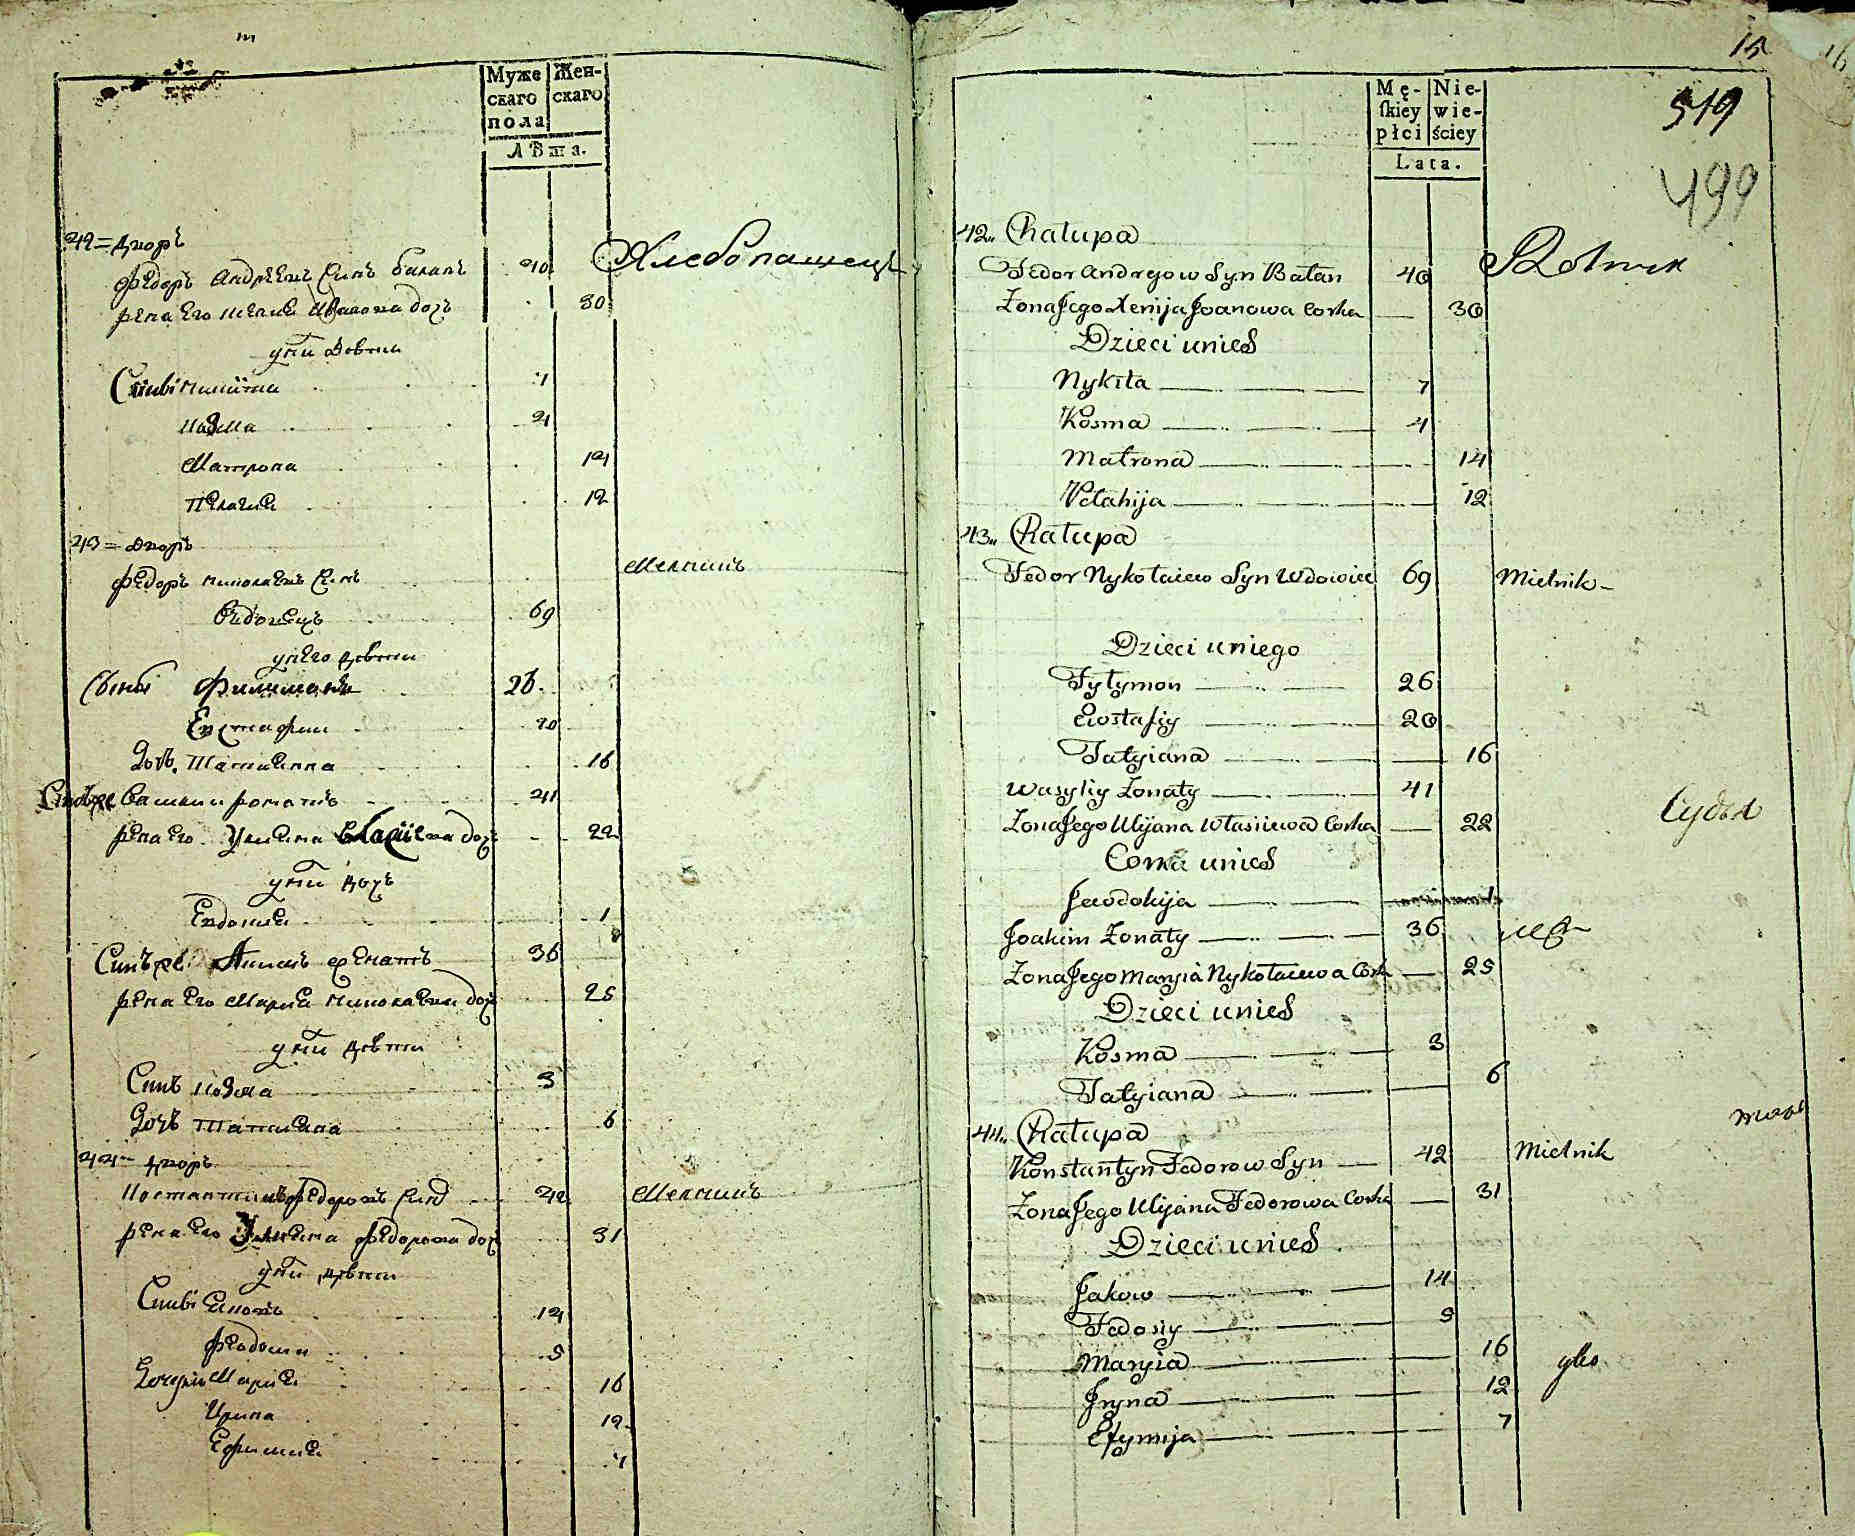 Муже
скаго
пола
Жен-
скаго
Лѣта.
42 = Дворъ
Федоръ Андреевъ Синъ Баланъ 40 Хлебопашецъ
жена его Ксения Иванова дочь 30
у них Дѣти
Синві Никита 7
Козма 4
Матрона 14
Пелагия 12
43 = Дворъ
Федоръ Николаевъ Синъ Мелникъ
Вдовецъ 69
у него дѣти
Сынві Филимонъ 26
Евстафии 20
Дочь Татиянна 16
Василии женатъ 41
жена его Улияна Власиева дочь 22
у них дочь
Евдокия 1
Синъ Якимъ женатъ 36
жена его Мария Николаева дочь 25
у них дѣти
Синъ Козма 3
Дочь Татияна 6
44 = Дворъ
Костантинъ Федоровъ Синъ 42 Мелникъ
жена его Улияна Федорова дочь 31
у них дѣти
Синві Яковъ 14
Феодосии 9
Дочери Мария 16
Ирина 12
Ефимия 7
15
16
519
499
Mę-
skiey
płci
Nie-
wie-
ściey
Lata.
42,, Chałupa
Fedor Andregow Syn Bałan 40 Rolnik
Zona Jego Xenija Joanowa Corka 30
Dzieci u nieŚ
Nykita 7
Kosma 4
Matrona 14
Pełahija 12
43,, Chałupa
Fedor Nykołaiew Syn Wdowiec 69 Mielnik
Dzieci u niego
Fyłymon 26
Ewstafiy 20
Tatyiana 16
Wasyliy Zonaty 41
Zona Jego Ulijana Własiiewa Corka 22
Судъя
Corka u nieŚ
Jewdokija
Joakim Zonaty 36
Zona Jego Maryia Nykołaiewa Cork 25
Dzieci u nieŚ
Kosma 3
Tatyiana 6
44,, Chałupa
Konstantyn Fedorow Syn 42 Mielnik
Zona Jego Ulijana Fedorowa Corka 31
Dzieci u nieŚ
Jakow 14
Fedosiy 9
Maryia 16
Jryna 12
Efymija 7